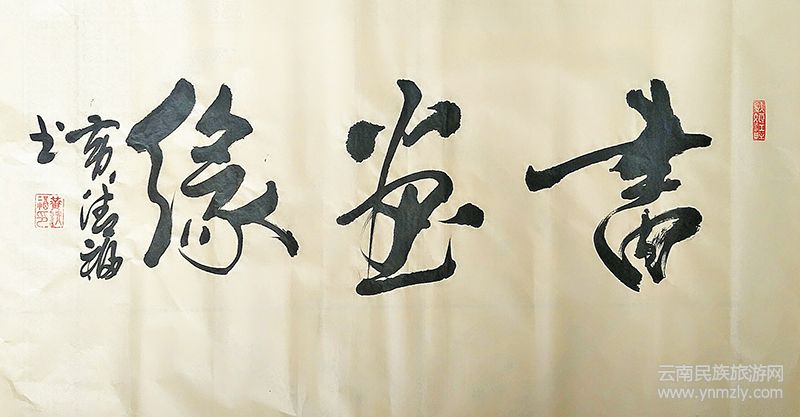 書画緣
黄清福
书
云南民族旅游网
www.ynmzly.com